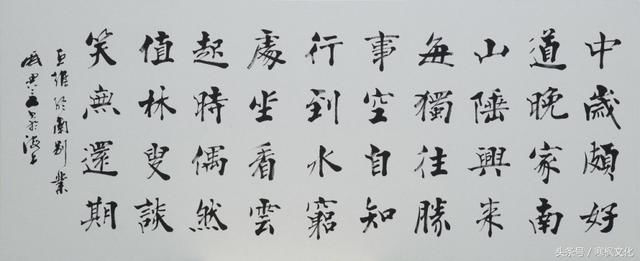 中歲頗好
道晚家南
山陲興來
每獨往勝
事空自知
行到水窮
處坐看雲
起時偶然
值林叟談
笑無還期
王維終南别業
头条号 / 寒枫文化